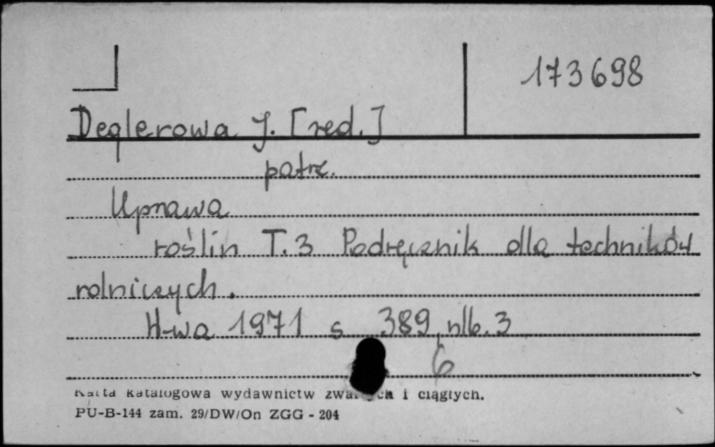 173698
Deglerowa J. [red.]
patrz.
Uprawa
roślin T.3 Podręcznik dla techników
rolniczych.
W-wa 1971 s 389, nlb. 3
6
Karta katalogowa wydawnictw zwartych i ciągłych.
PU-B-144 zam. 29/DW/On ZGG - 204